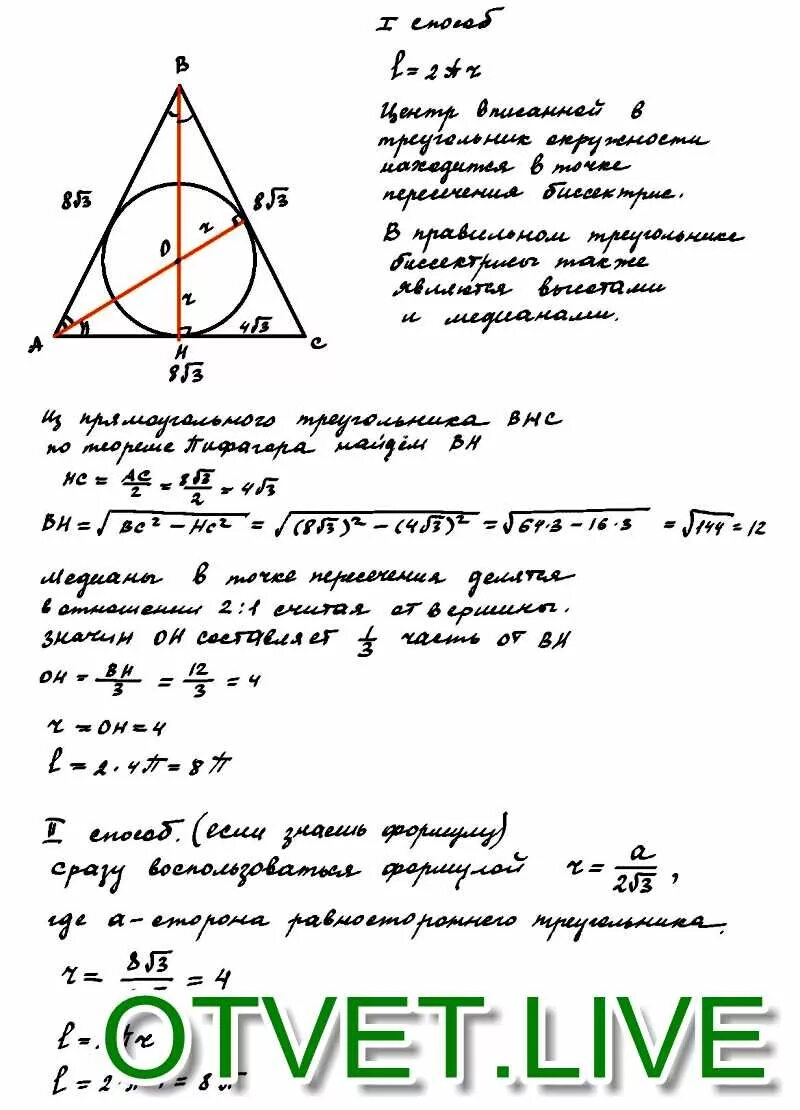 I способ
l = 2πr
Центр вписанной в
треугольник окружности
находится в точке
пересечения биссектрис.
В правильном треугольнике
биссектрисы также
являются высотами
и медианами.
B
8√3
8√3
r
O
r
4√3
A
H
C
8√3
Из прямоугольного треугольника BHC
по теореме Пифагора найдём BH
HC = AC/2 = 8√3/2 = 4√3
BH = √(BC² − HC²) = √((8√3)² − (4√3)²) = √(64·3 − 16·3) = √144 = 12
Медианы в точке пересечения делятся
в отношении 2:1 считая от вершины.
значит OH составляет 1/3 часть от BH
OH = BH/3 = 12/3 = 4
r = OH = 4
l = 2·4π = 8π
II способ. (если знаешь формулу)
сразу воспользоваться формулой r = a/2√3,
где a – сторона равностороннего треугольника.
r = 8√3 = 4
l = r
l = 2· = 8π
OTVET.LIVE